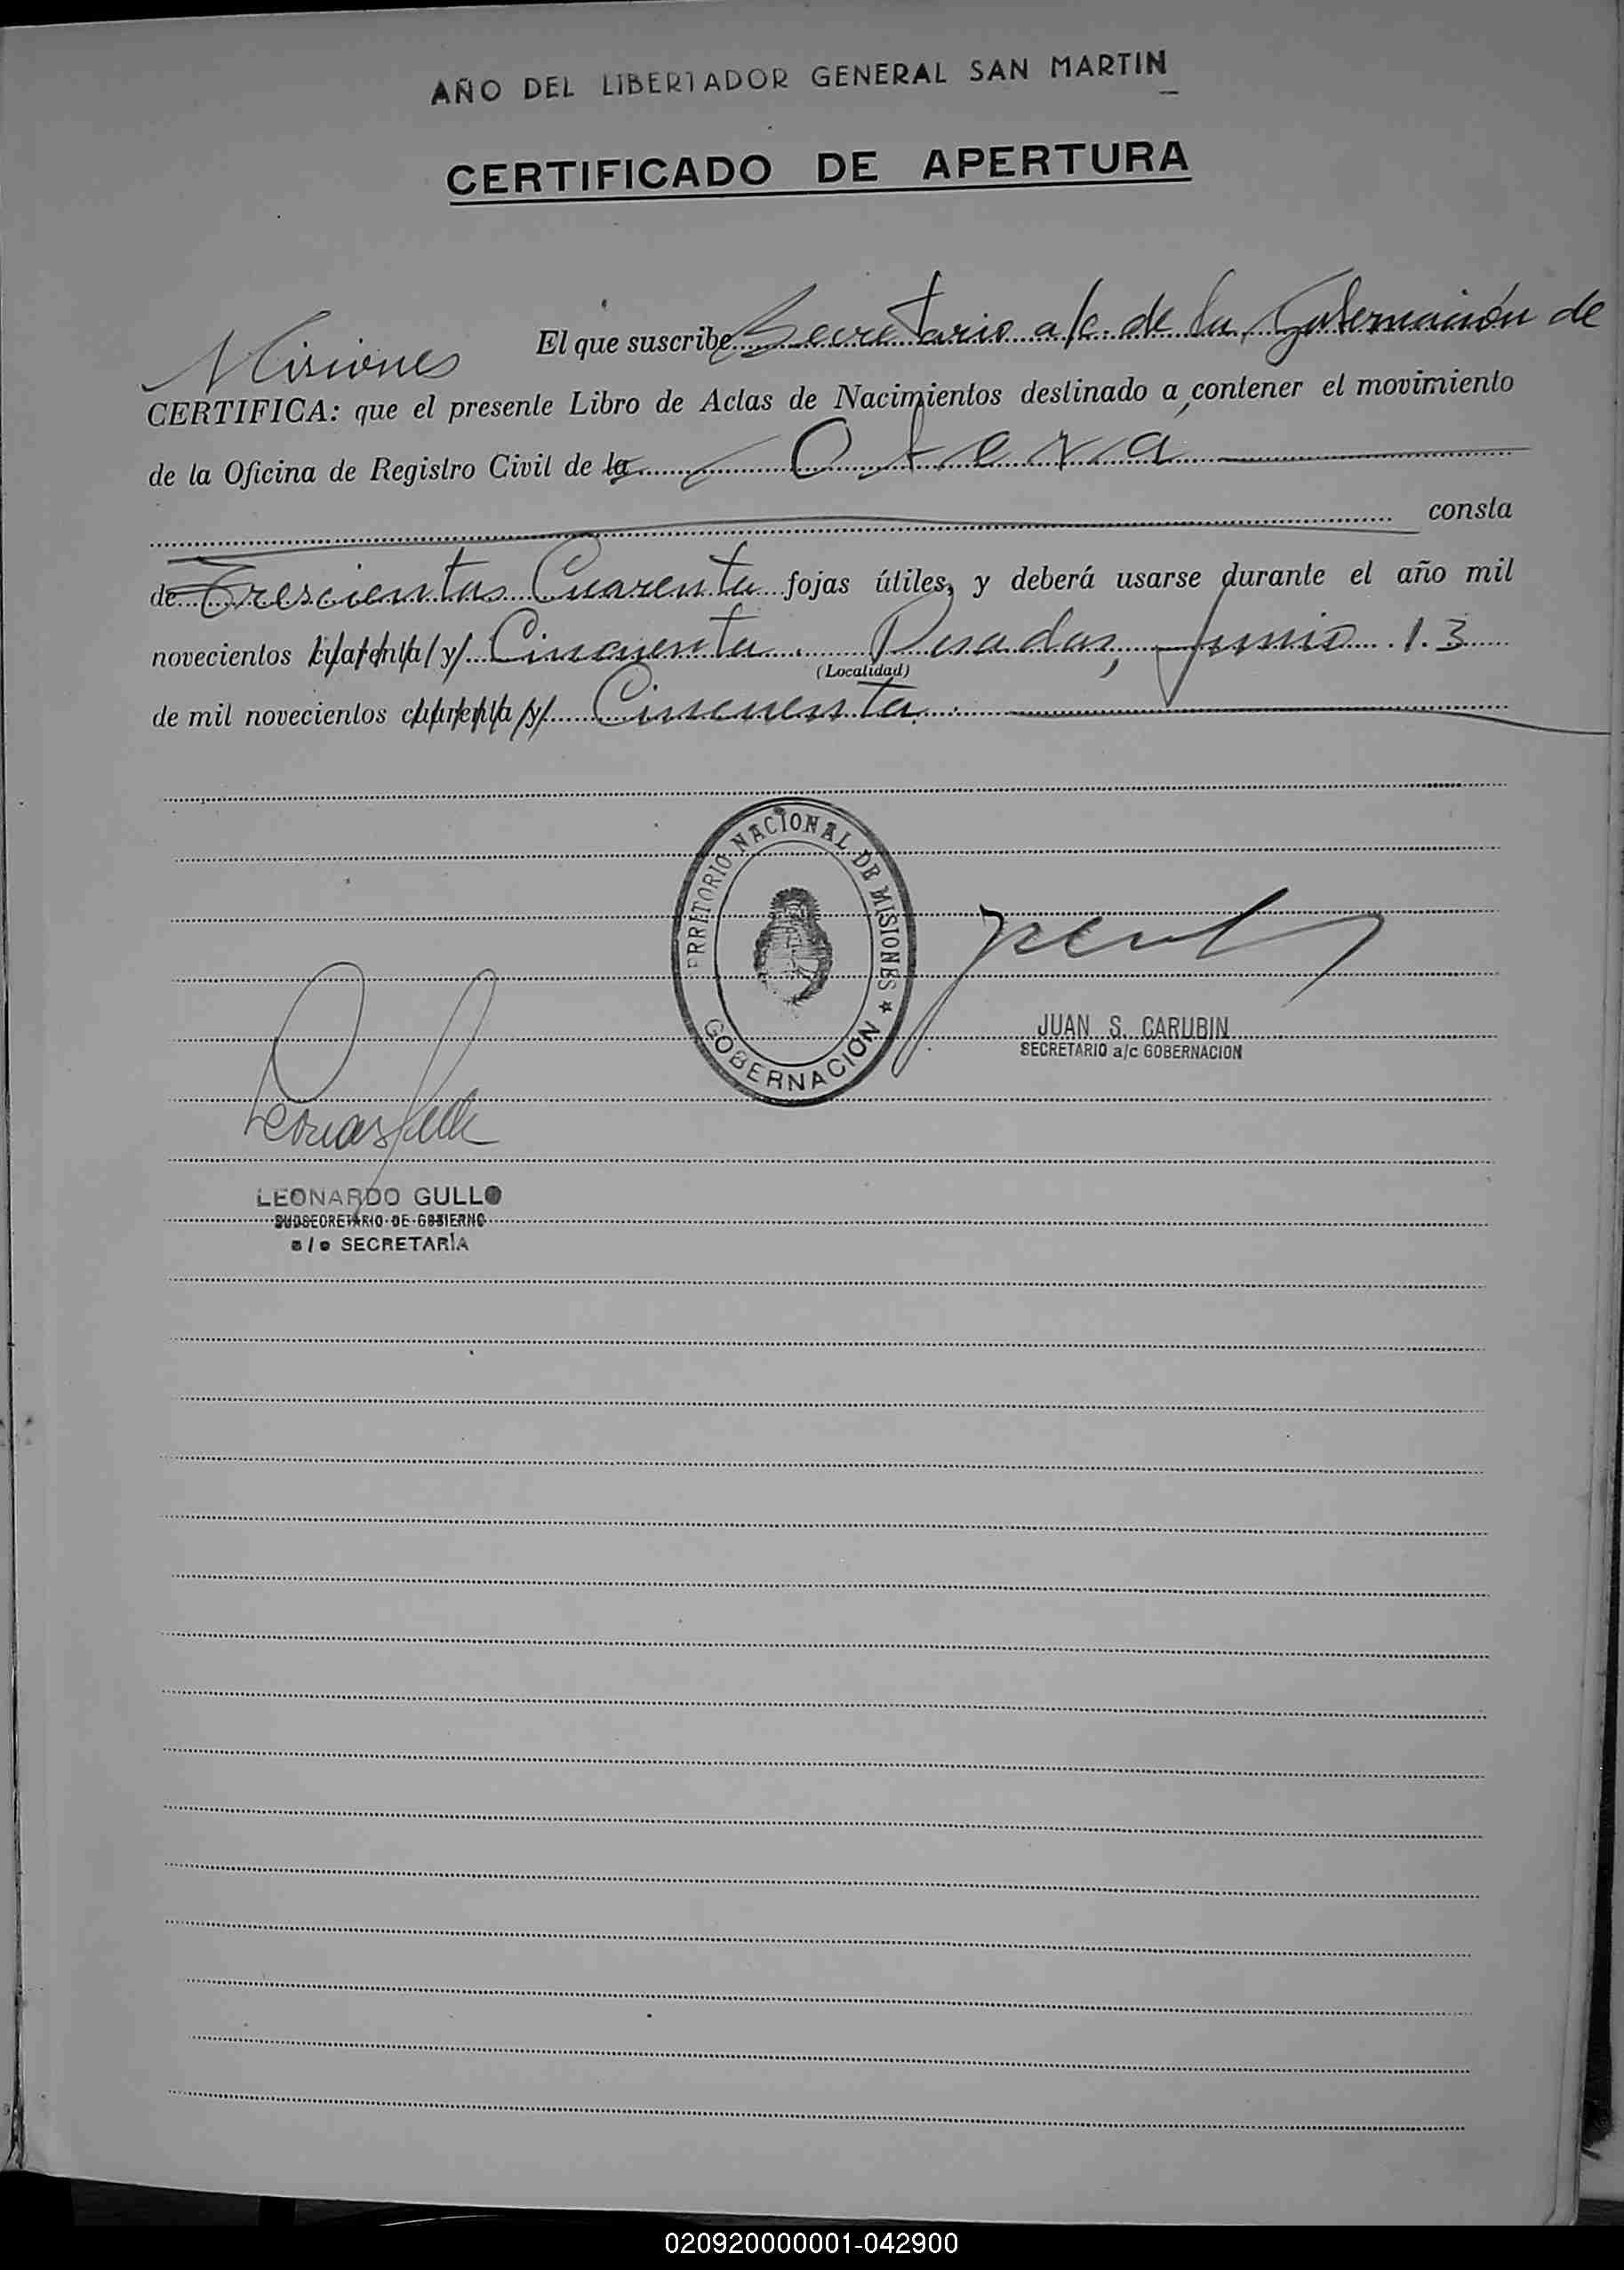 AÑO DEL LIBERTADOR GENERAL SAN MARTIN
CERTIFICADO DE APERTURA
El que suscribe Secretario a/c. de la Gobernación de
Misiones
CERTIFICA: que el presente Libro de Actas de Nacimientos destinado a contener el movimiento
de la Oficina de Registro Civil de la Oberá
consta
de Trescientas Cuarenta fojas útiles, y deberá usarse durante el año mil
novecientos cuarenta y Cincuenta. Posadas, Junio 13
(Localidad)
de mil novecientos cuarenta y Cincuenta.
TERRITORIO NACIONAL DE MISIONES ★
GOBERNACION
JUAN S. CARUBIN
SECRETARIO a/c GOBERNACION
LEONARDO GULLO
SUBSECRETARIO DE GOBIERNO
a/c SECRETARÍA
020920000001-042900